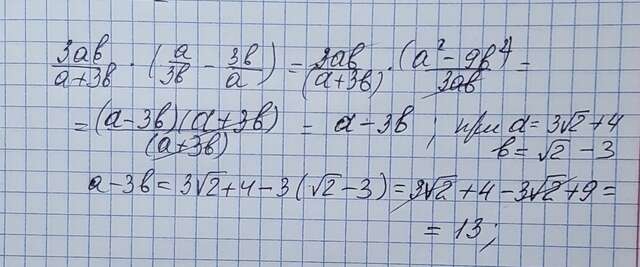 3ab/(a+3b) · (a/3b − 3b/a) = 3ab/(a+3b) · (a² − 9b²)/3ab =
= (a−3b)(a+3b)/(a+3b) = a−3b ; при a = 3√2+4
b = √2 − 3
a−3b = 3√2+4−3(√2−3) = 3√2+4−3√2+9 =
= 13;